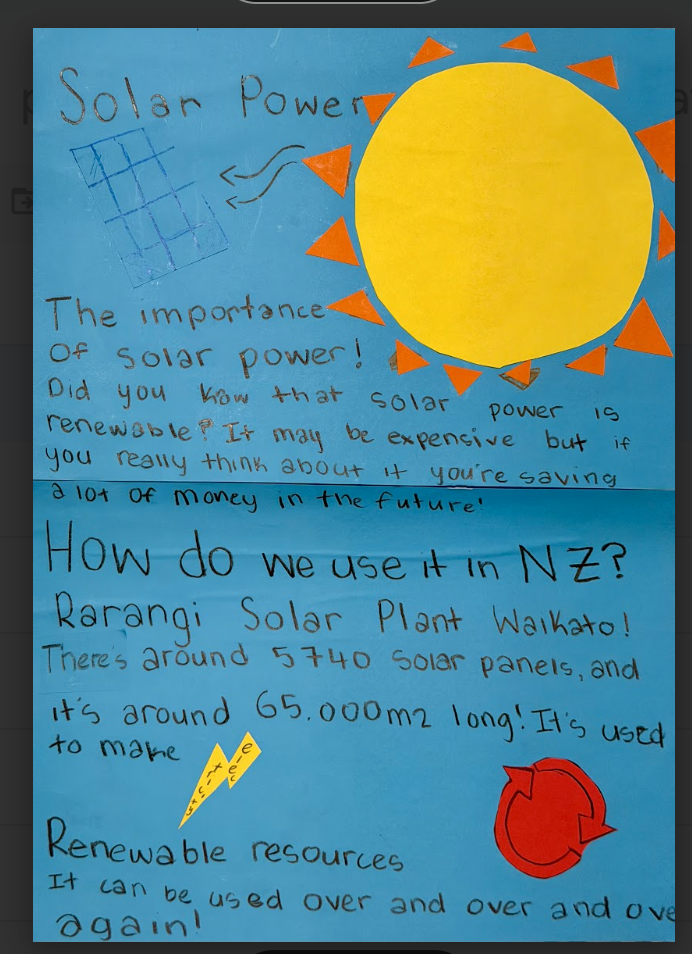 Solar Power
The importance
Of solar power!
Did you know that solar power is
renewable? It may be expensive but if
you really think about it you're saving
a lot of money in the future!
How do we use it in NZ?
Rarangi Solar Plant Waikato!
There's around 5740 solar panels, and
it's around 65.000m2 long! It's used
to make
electricity
Renewable resources
It can be used over and over and ove
again!